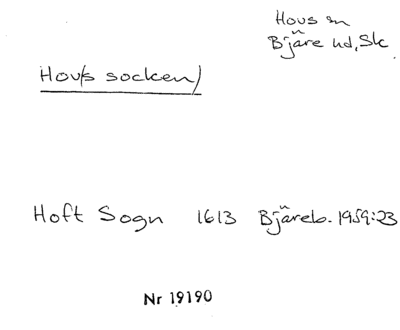 Hovs sn
Bjäre hd, Sk
Hov/s socken/
Hoft Sogn 1613 Bjäreb. 1959:23
Nr 19190